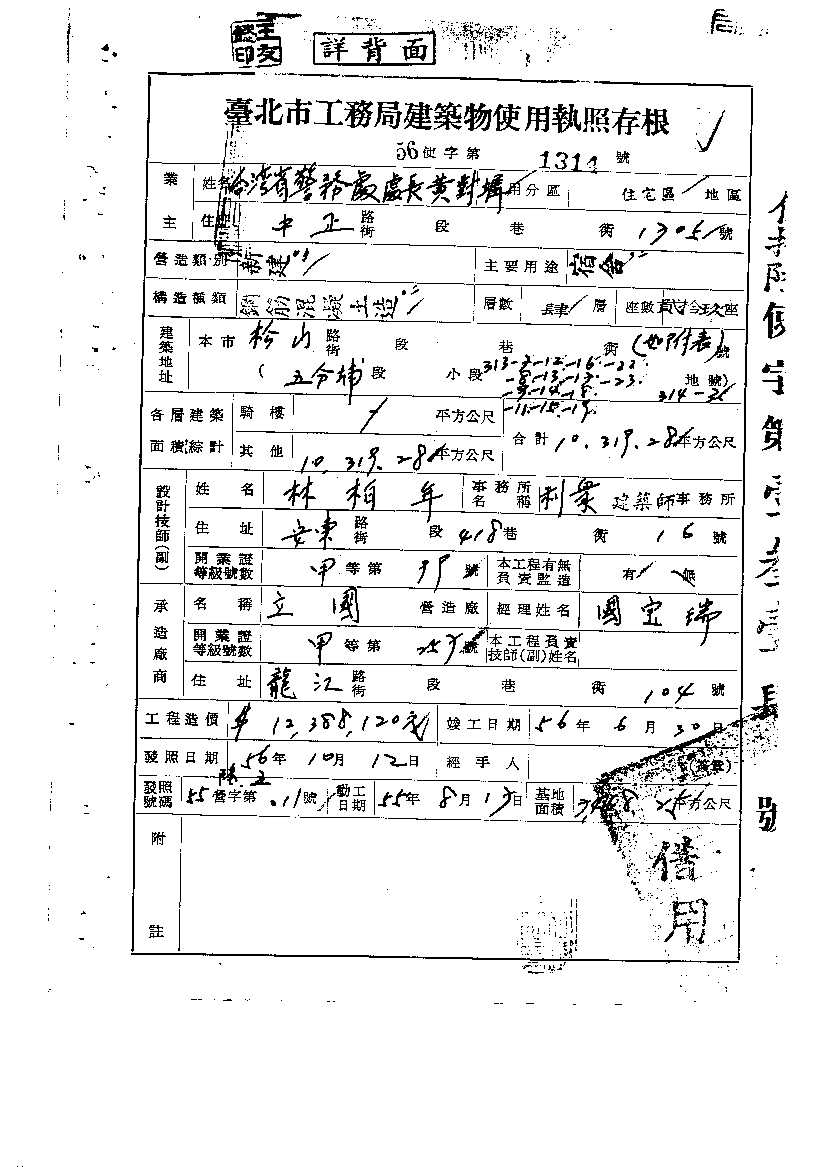 詳背面
臺北市工務局建築物使用執照存根
56使字第 1314 號
業主 姓名 台灣省警務處處長黃對墀 用分區 住宅區 地區
住址 中正 路街 段 巷 衖 1305 號
營造類別 新建 主要用途 宿舍
構造種類 鋼筋混凝土造 層數 肆 層 座數 貳拾玖座
建築地址 本市 松山 路街 段 巷 衖 (如附表) 號
( 五分埔 段 小段 313-7-12-16-22 地號)
-8-13-17-23
-9-14-18 314-3
-11-15-19
各層建築面積綜計 騎樓 / 平方公尺
其他 10,319.28 平方公尺 合計 10,319.28 平方公尺
設計技師(副) 姓名 林柏年 事務所名稱 利眾 建築師事務所
住址 安東 路街 段 418 巷 衖 16 號
開業證等級號數 甲 等第 號 本工程有無負責監造 有 無
承造廠商 名稱 立國 營造廠 經理姓名 國宝瑞
開業證等級號數 甲 等第 號 本工程負責技師(副)姓名
住址 龍江 路街 段 巷 衖 104 號
工程造價 $12,388,120元 竣工日期 56年 6月 30日
發照日期 56年 10月 12日 經手人
發照號碼 55營字第 號 動工日期 55年 8月 日 基地面積 平方公尺
附註
借用
號